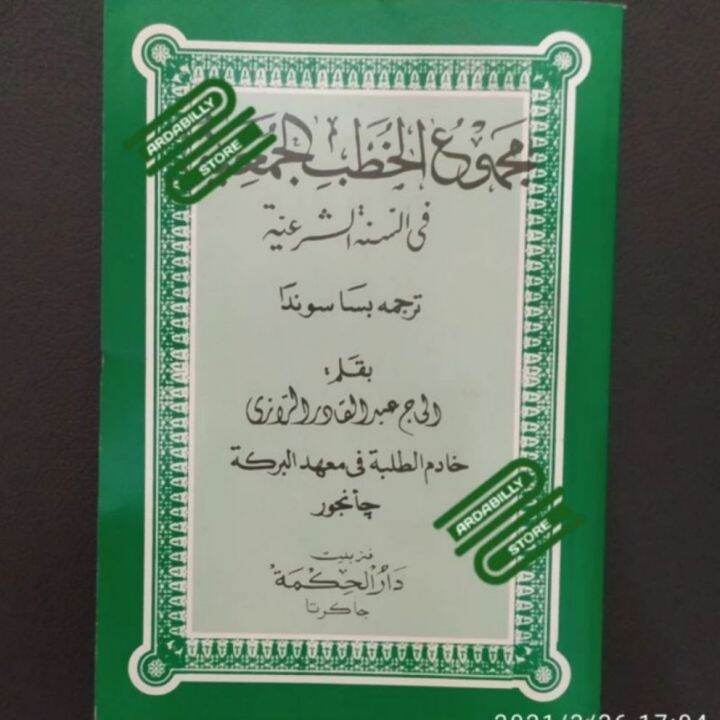 مجموع الخطب الجمعية
في السنة الشرعية
ترجمه بسا سوندا
بقلم:
الحاج عبد القادر الرازي
خادم الطلبة في معهد البركة
چيأنجور
فنربيت
دَارُ الحِكْمَةْ
جاكرتا
ARDABILLY
STORE
ARDABILLY
STORE